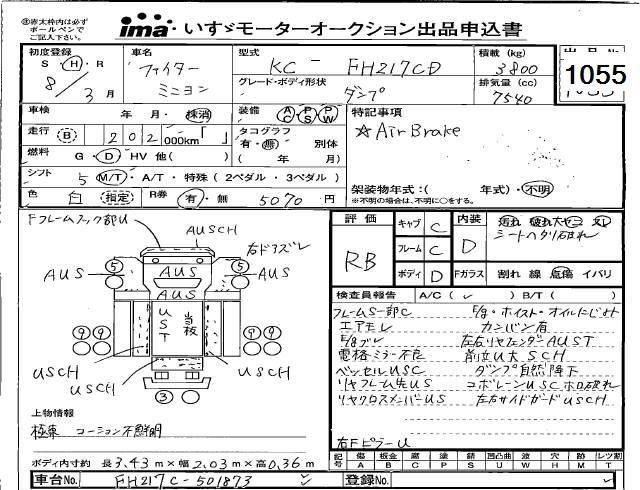 ㊟赤太枠内は必ず
ボールペンで
ご記入下さい。
ima いすゞモーターオークション出品申込書
初度登録
S・H・R
8 / 3 月
車名
ファイター
ミニヨン
型式
KC - FH217CD
グレード・ボディ形状
ダンプ
積載 (kg)
3800
排気量 (cc)
7540
1055
車検 年・月・抹消
装備 AC・PS・PW
走行 B 202 000km「 」
タコグラフ
有・無 別体
( 年 月)
燃料 G・D・HV 他( )
シフト 5 M/T・A/T・特殊(2ペダル・3ペダル)
色 白 指定
R券 有・無 5070 円
特記事項
☆Air Brake
架装物年式:( 年式)・不明
※不明の場合は、不明に○をする。
Fフレームフック部U
AUSCH
右ドアズレ
5 5
AUS AUS AUS
AUS
UST
当板
9 9 9 9
USCH USCH
USCH
3
上物情報
極東 コーション不鮮明
ボディ内寸約 長3.43m×幅2.03m×高0.36m
車台No. FH217C-501873
登録No.
評価
RB
キャブ C
フレーム C
ボディ D
内装 D
汚れ 破れ大
シートヘタリ破れ
Fガラス 割れ 線 点傷 イバリ
検査員報告 A/C( ✓ ) B/T( )
フレームS一部C
エアモレ
F/gブレ
電格ミラー不良
ベッセルUSC
リヤフレーム先US
リヤクロスメンバーUS
右FピラーU
F/g・ホイスト・オイルにじみ
カンバン有
左右リヤフェンダーAUST
前立U大SCH
ダンプ自然降下
コボレーンUSCホロ破れ
左右サイドガードUSCH
記号 傷 板金 腐 塗 錆 凹凸曲 波 穴 跡 レツ割
A B C P S U W H M T